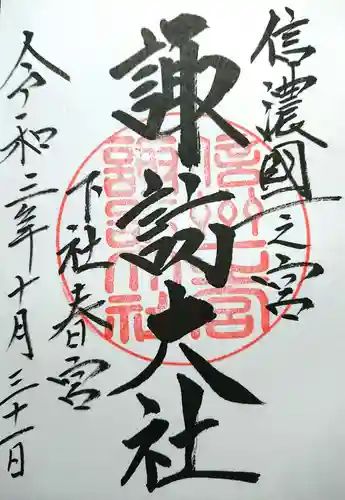 信濃國一之宮
諏訪大社
下社春宮
令和二年十月三十一日